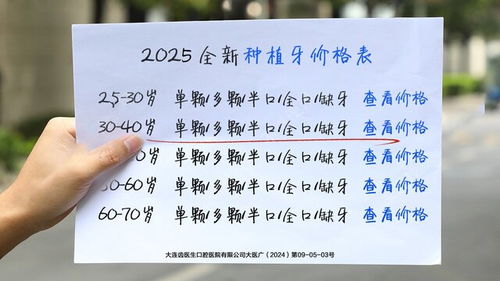 2025 全新 种植牙价格表
25-30岁 单颗/多颗/半口/全口/缺牙 查看价格
30-40岁 单颗/多颗/半口/全口/缺牙 查看价格
0岁 单颗/多颗/半口/全口/缺牙 查看价格
0-60岁 单颗/多颗/半口/全口/缺牙 查看价格
60-70岁 单颗/多颗/半口/全口/缺牙 查看价格
大连齿医生口腔医院有限公司大医广（2024）第09-05-03号